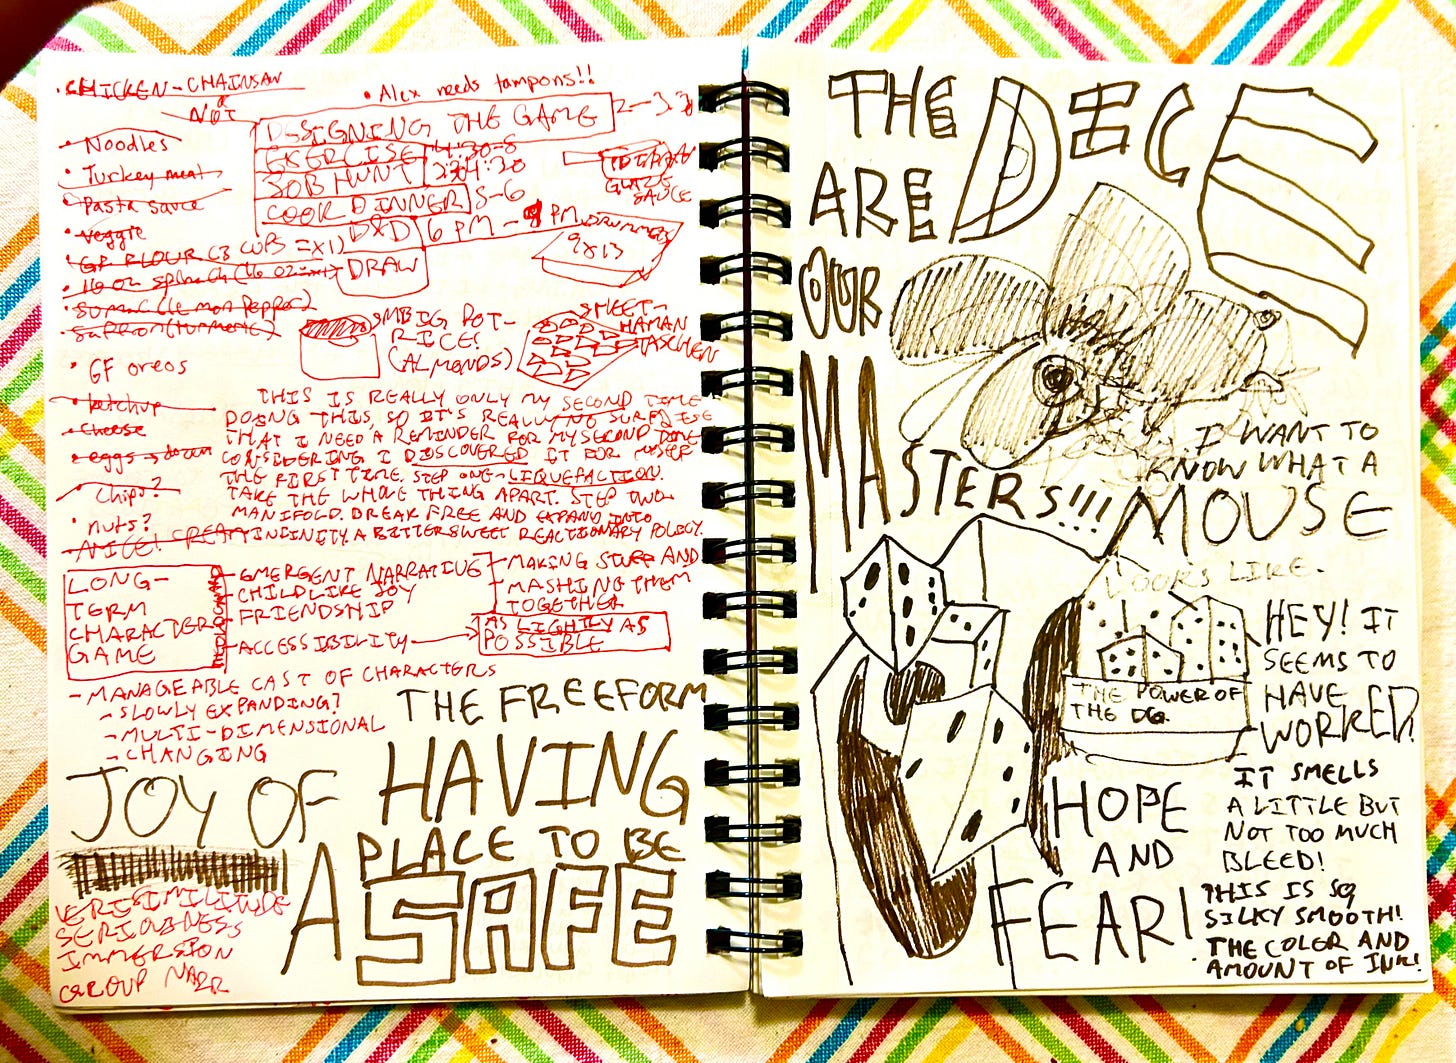 CHICKEN-CHAINSAW
NOT
• Alex needs tampons!!
• Noodles
• Turkey meat
• Pasta sauce
• veggie
• GF FLOUR (3 CUB = X1)
• 16 oz spinach (16 ozmm)
• sumac (lemon pepper)
• saffron (turmeric)
• GF oreos
• ketchup
• cheese
• eggs → down
• chips?
• nuts?
DESIGNING THE GAME 2-3:30
EXERCISE
JOB HUNT
COOK DINNER 5-6
D&D 6 PM - 9 PM
DRAW
GLAZE
SAUCE
DRUMMERS
9x13
BIG POT-
RICE!
(ALMONDS)
MEET-
HAMAN
TASCHEN
THIS IS REALLY ONLY MY SECOND TIME
DOING THIS, SO IT'S REALLY NO SURPRISE
THAT I NEED A REMINDER FOR MY SECOND TIME
CONSIDERING I DISCOVERED IT FOR MYSELF
THE FIRST TIME. STEP ONE-LIQUEFACTION.
TAKE THE WHOLE THING APART. STEP TWO-
MANIFOLD. BREAK FREE AND EXPAND INTO
INFINITY. A BITTERSWEET REACTIONARY POLICY.
LONG-
TERM
CHARACTER
GAME
- EMERGENT NARRATIVE
- CHILDLIKE JOY
- FRIENDSHIP
- ACCESSIBILITY
- MAKING STUFF AND
- MASHING THEM
TOGETHER
AS LIGHTLY AS
POSSIBLE
- MANAGEABLE CAST OF CHARACTERS
- SLOWLY EXPANDING?
- MULTI-DIMENSIONAL
- CHANGING
THE FREEFORM
JOY OF HAVING
A PLACE TO BE
SAFE
VERISIMILITUDE
SERIOUSNESS
IMMERSION
GROUP NARR
THE DECE
ARE
OUR
MASTERS!!!
I WANT TO
KNOW WHAT A
MOUSE
LOOKS LIKE.
THE POWER OF
THE DG.
HEY! IT
SEEMS TO
HAVE
WORKED!
IT SMELLS
A LITTLE BUT
NOT TOO MUCH
BLEED!
THIS IS SO
SILKY SMOOTH!
THE COLER AND
AMOUNT OF INK!
HOPE
AND
FEAR!